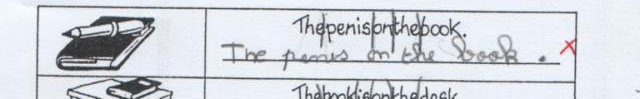 Thepenisonthebook.
The penis on the book .
Thebookisonthedesk